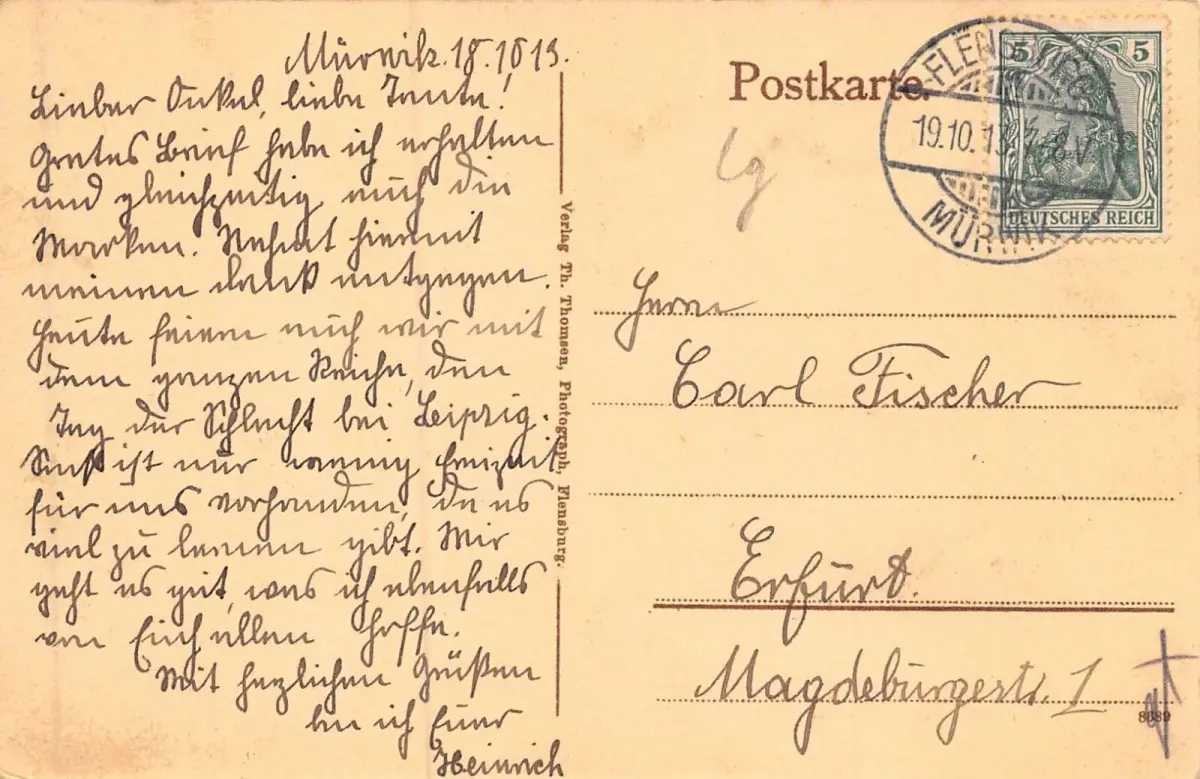 Mürwik. 18.10.13.
Lieber Onkel, liebe Tante!
Gretes Brief habe ich erhalten
und gleichzeitig auch die
Marken. Nehmt hiermit
meinen Dank entgegen.
Heute feiern auch wir mit
dem ganzen Reiche, den
Tag der Schlacht bei Leipzig.
Sonst ist nur wenig Freizeit
für uns vorhanden, da es
viel zu lernen gibt. Mir
geht es gut, was ich ebenfalls
von Euch allen hoffe.
Mit herzlichen Grüßen
bin ich Euer
Heinrich
Verlag Th. Thomsen, Photograph, Flensburg.
Postkarte.
FLENSBURG
19.10.13. 7-8 V.
MÜRWIK
5 5
DEUTSCHES REICH
Herrn
Carl Fischer
Erfurt.
Magdeburgestr. 1
8689